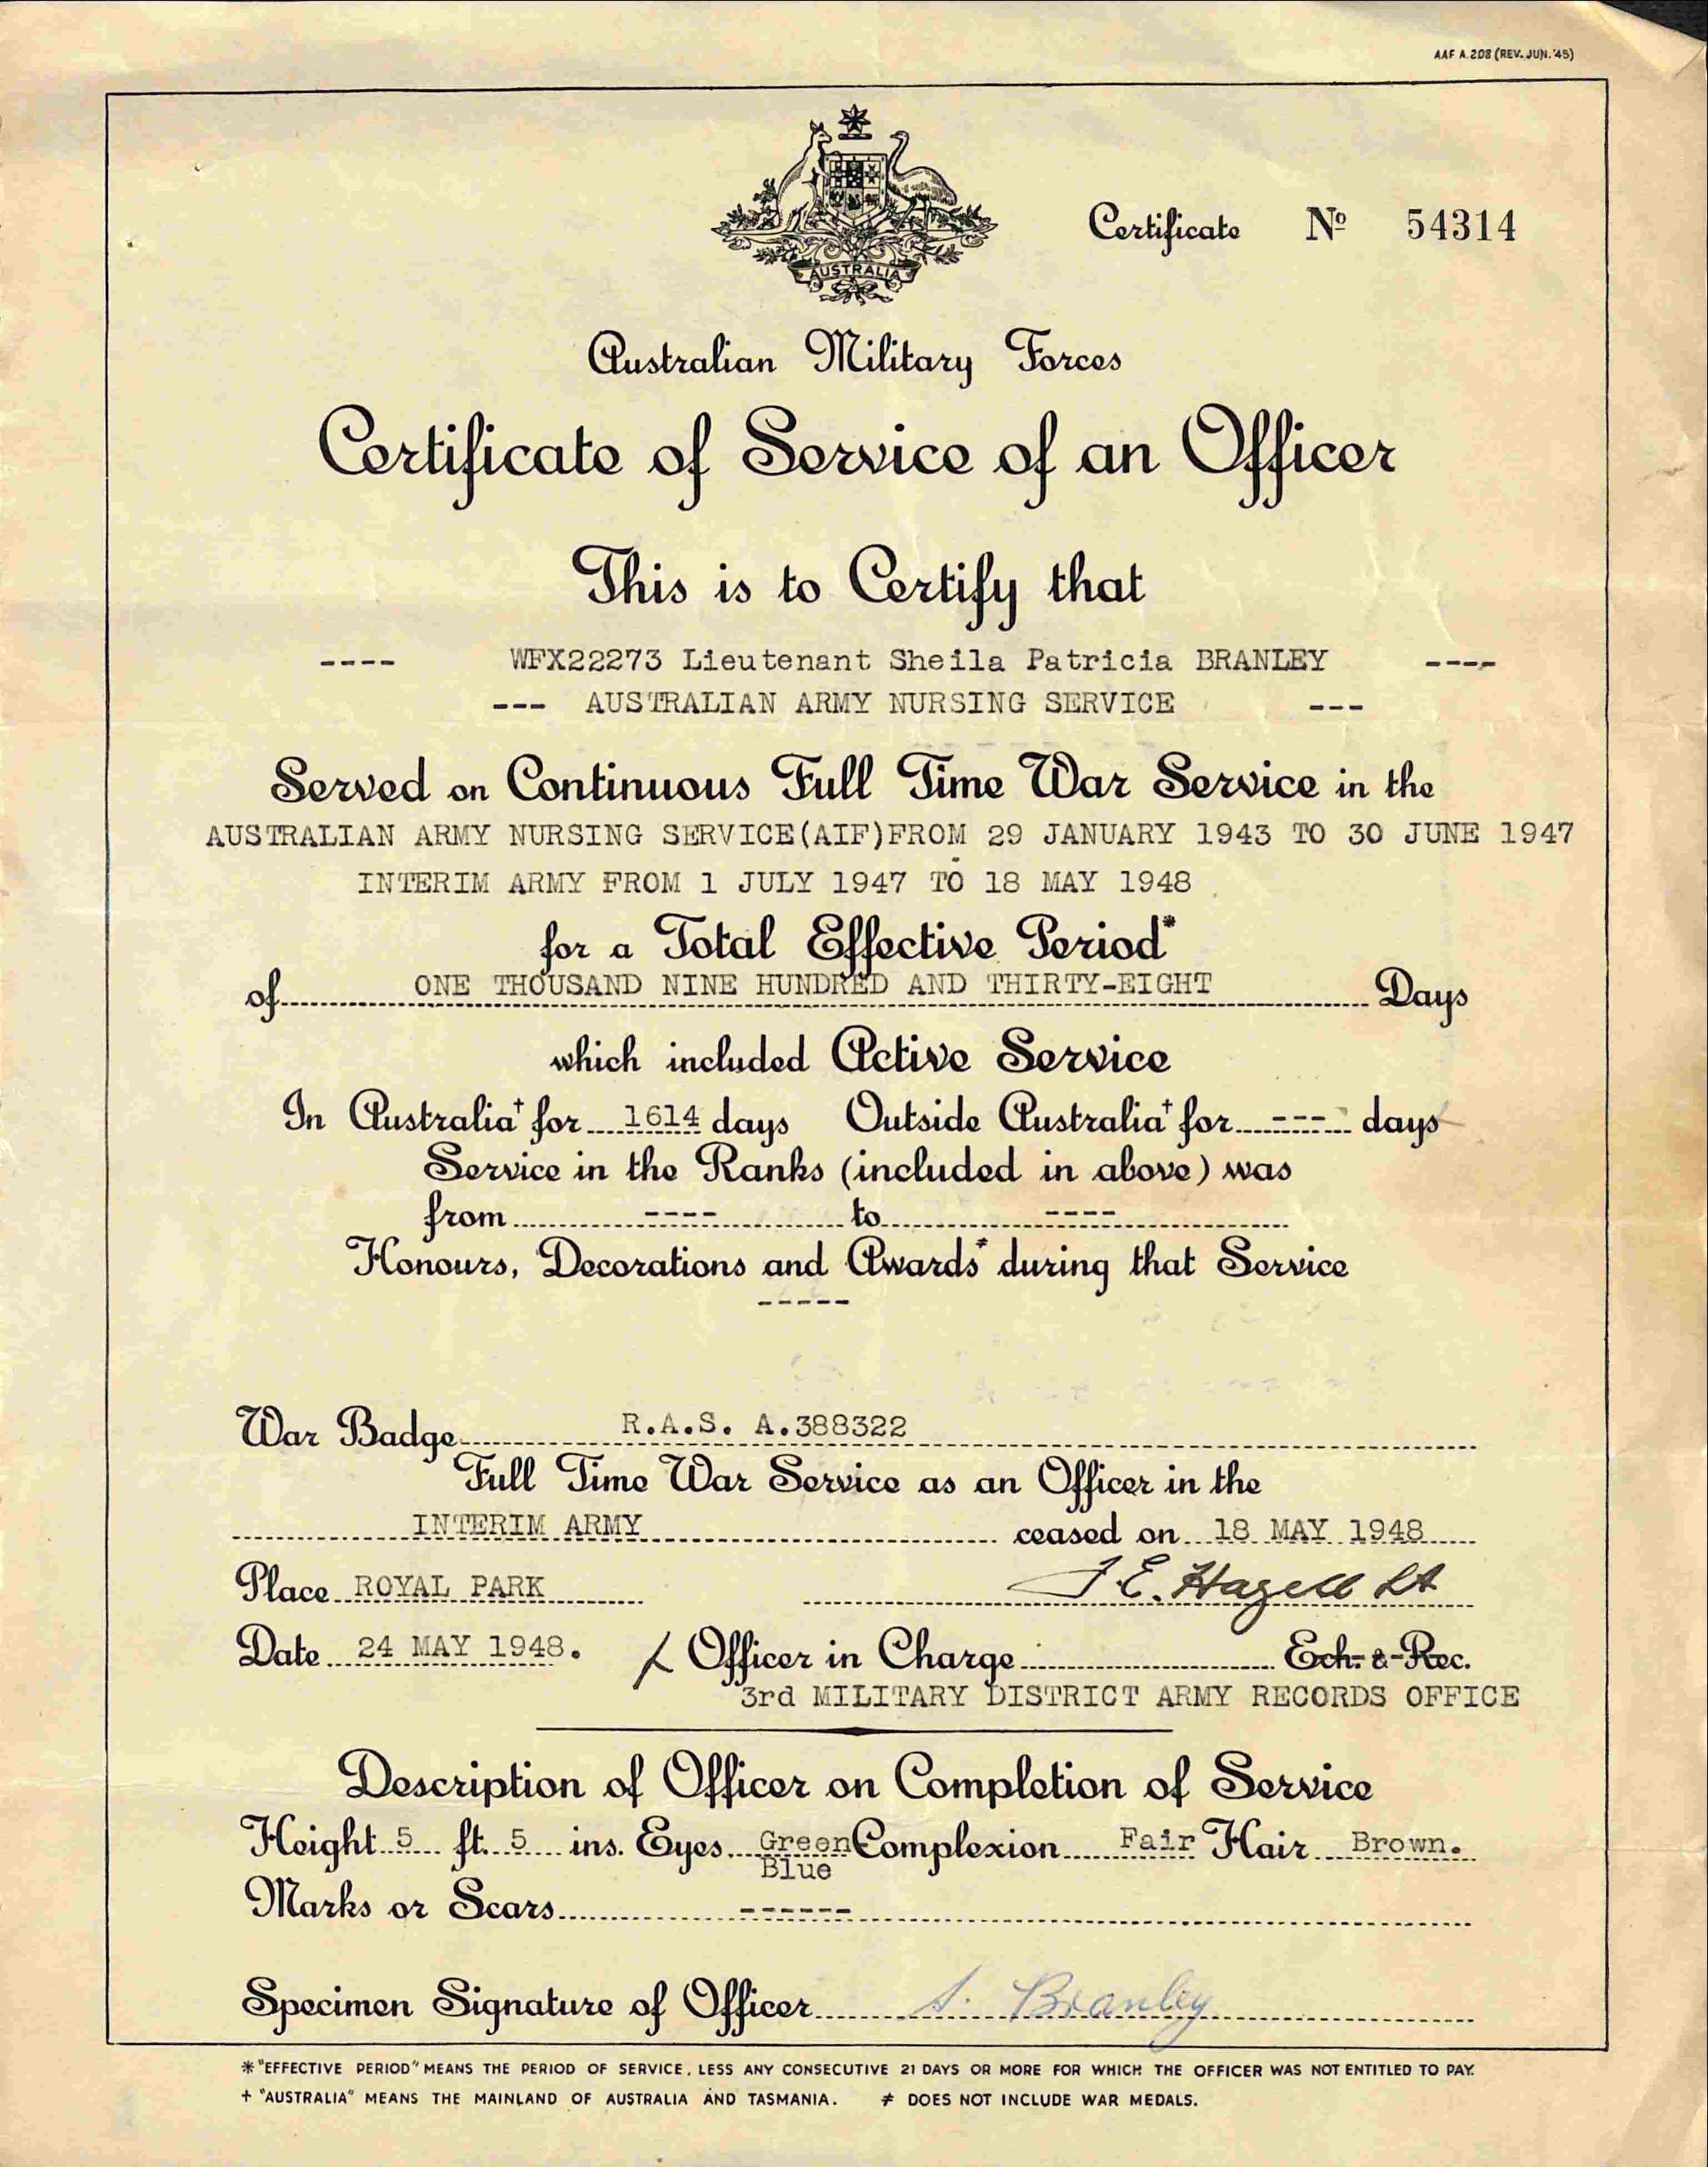 AAF A.208 (REV. JUN. '45)
AUSTRALIA
Certificate Nº 54314
Australian Military Forces
Certificate of Service of an Officer
This is to Certify that
---- WFX22273 Lieutenant Sheila Patricia BRANLEY ----
--- AUSTRALIAN ARMY NURSING SERVICE ---
Served on Continuous Full Time War Service in the
AUSTRALIAN ARMY NURSING SERVICE(AIF)FROM 29 JANUARY 1943 TO 30 JUNE 1947
INTERIM ARMY FROM 1 JULY 1947 TO 18 MAY 1948
for a Total Effective Period*
of ONE THOUSAND NINE HUNDRED AND THIRTY-EIGHT Days
which included Active Service
In Australia† for 1614 days Outside Australia† for --- days
Service in the Ranks (included in above) was
from ---- to ----
Honours, Decorations and Awards≠ during that Service
-----
War Badge R.A.S. A.388322
Full Time War Service as an Officer in the
INTERIM ARMY ceased on 18 MAY 1948
Place ROYAL PARK J.E. Hagell Lt
Date 24 MAY 1948. Officer in Charge Ech. & Rec.
3rd MILITARY DISTRICT ARMY RECORDS OFFICE
Description of Officer on Completion of Service
Height 5 ft. 5 ins. Eyes Green Complexion Fair Hair Brown.
Blue
Marks or Scars ------
Specimen Signature of Officer S. Branley
* "EFFECTIVE PERIOD" MEANS THE PERIOD OF SERVICE, LESS ANY CONSECUTIVE 21 DAYS OR MORE FOR WHICH THE OFFICER WAS NOT ENTITLED TO PAY.
+ "AUSTRALIA" MEANS THE MAINLAND OF AUSTRALIA AND TASMANIA. ≠ DOES NOT INCLUDE WAR MEDALS.